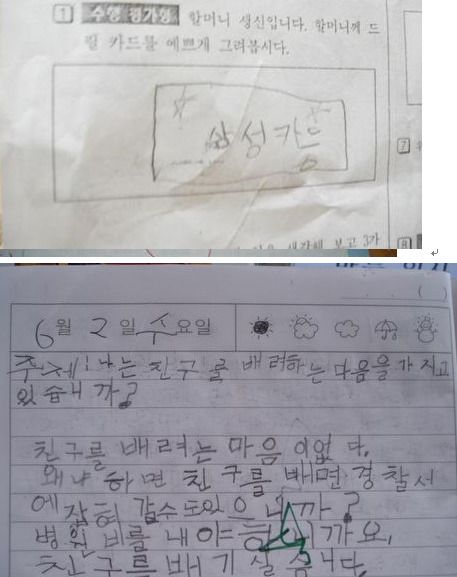 1 수행 평가형 할머니 생신입니다. 할머니께 드
릴 카드를 예쁘게 그려봅시다.
삼성카드
7
생각해 보고 3가
8
6월 2일 수요일
주제: 나는 친구를 배려하는 마음을 가지고
있습니까?
친구를 배려는 마음이없다.
왜냐하면 친구를 배면 경찰서
에 잡혀 갈수도있으니까?
병원비를 내야하니까요.
친구를 배기 실습니다.